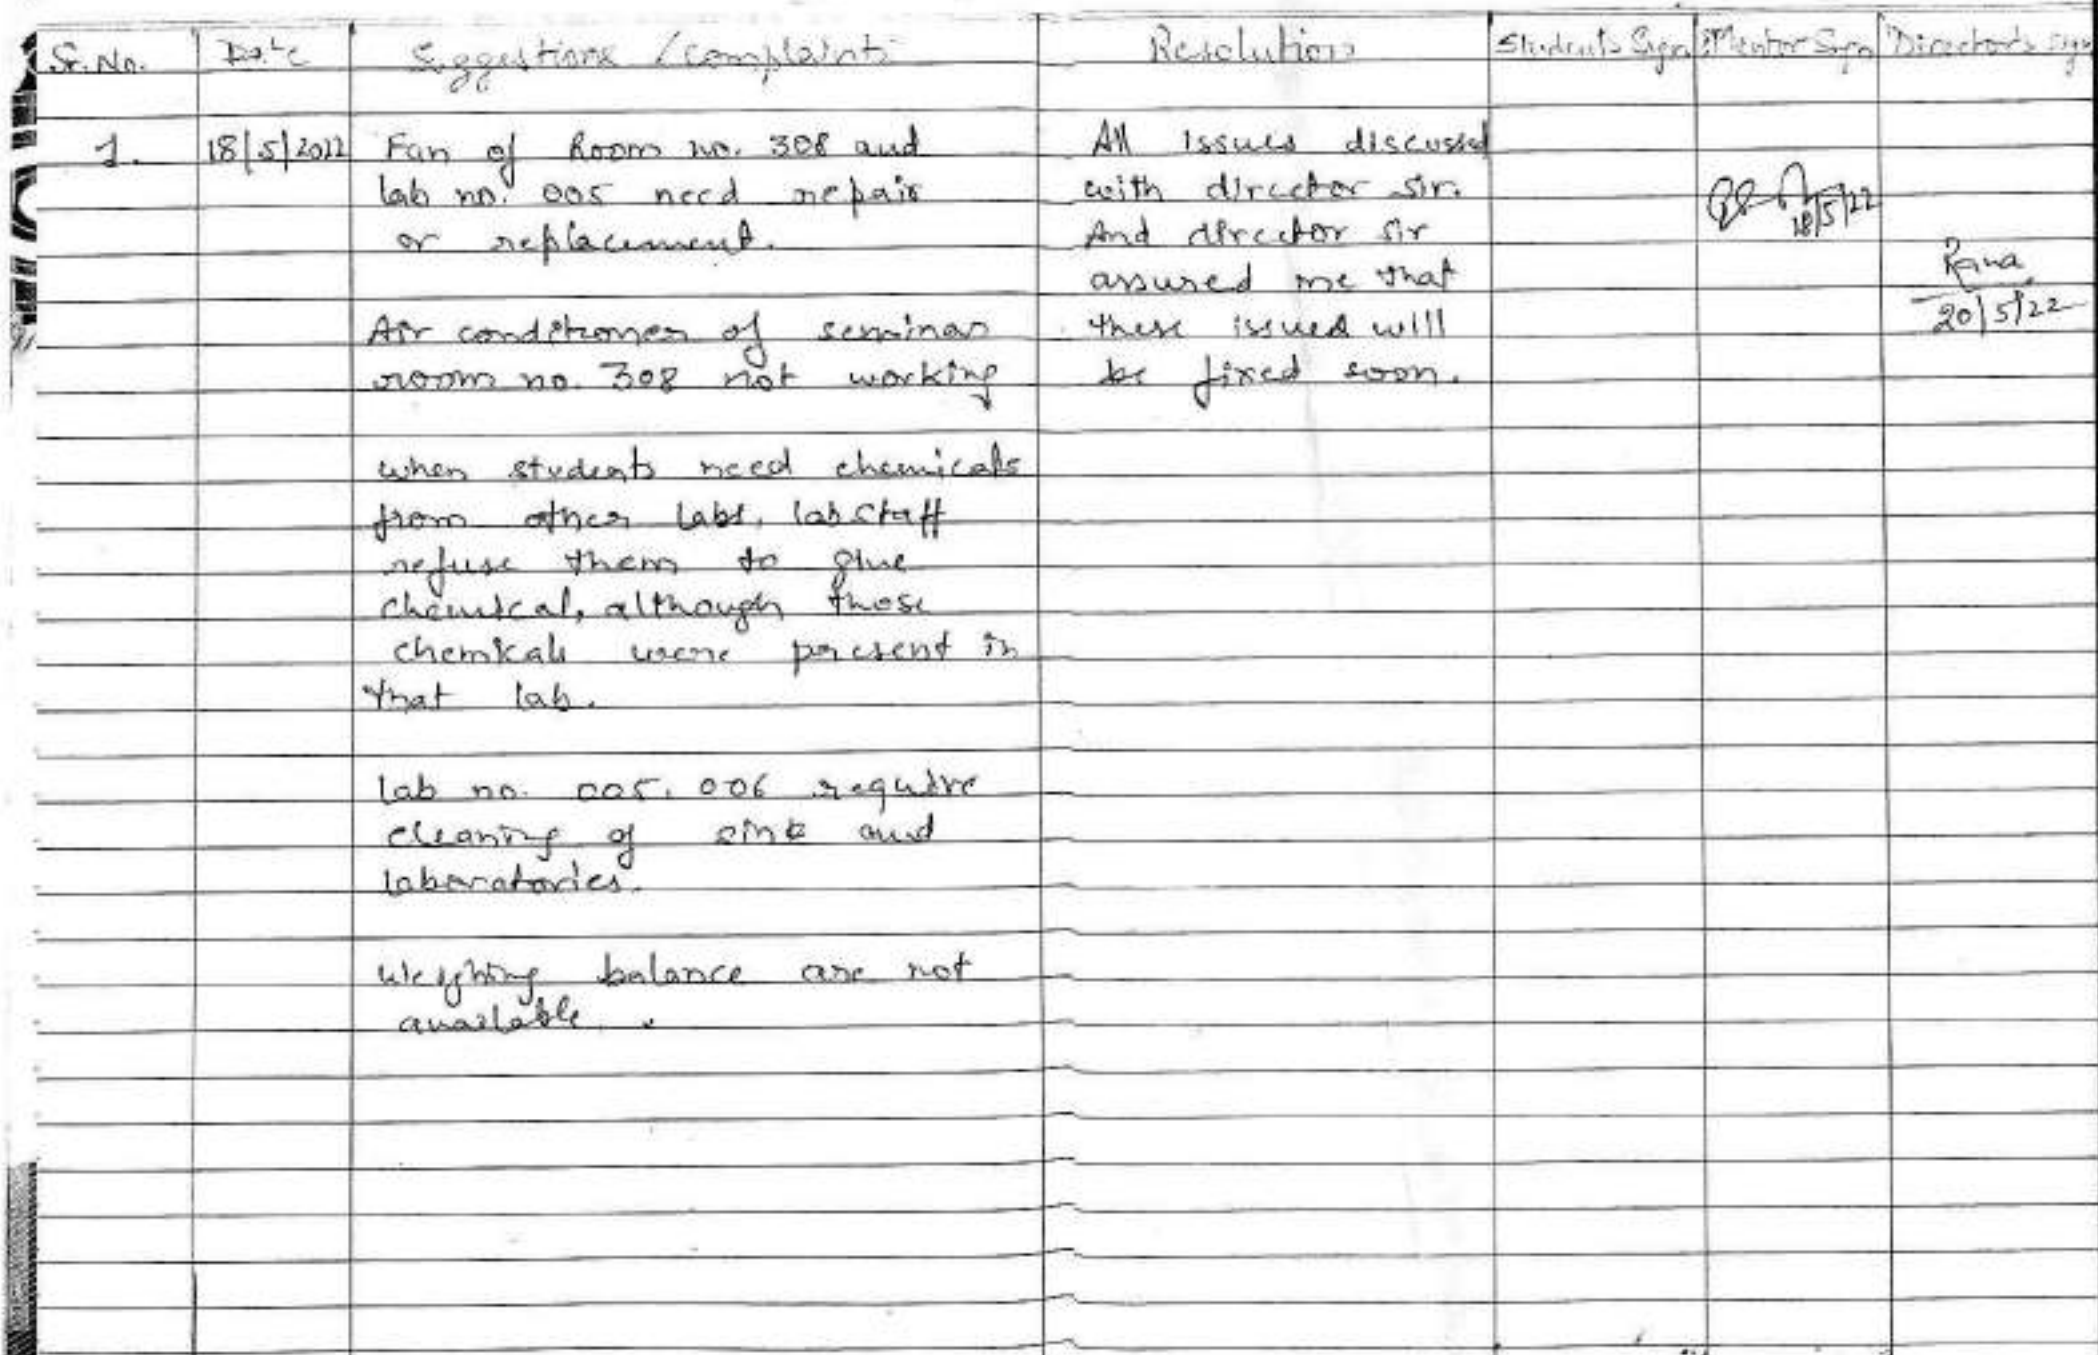 Sr. No. Date Suggestions / complaints Resolution Students Sign Mentor Sign Director's sign
1. 18/5/2022 Fan of Room no. 308 and
lab no. 005 need repair
or replacement.
Air conditioner of seminar
room no. 308 not working
when students need chemicals
from other labs, lab staff
refuse them to give
chemical, although those
chemicals were present in
that lab.
lab no. 005, 006 require
cleaning of sink and
laboratories.
Weighing balance are not
available.
All issues discussed
with director sir.
And director sir
assured me that
these issued will
be fixed soon.
18/5/22
Rana
20/5/22